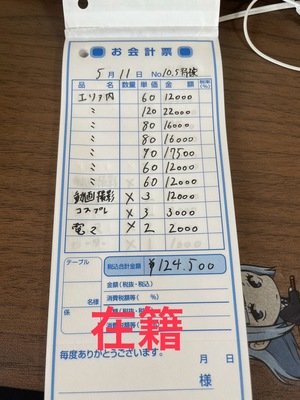 お会計票
5月11日 No.10.5
品 名 数量 単価 金額 税率(%)
エリア内 60 12000
〃 120 22000
〃 80 16000
〃 80 16000
〃 90 17500
〃 60 12000
〃 60 12000
動画撮影 × 3 12000
コスプレ × 3 3000
電マ × 2 2000
テーブル 税込合計金額 ¥124.500
金額(税抜・税込)
名様 消費税額等( %)
係 金額(税抜・税込)
消費税額等( %)
在籍
毎度ありがとうございます。
月 日
様